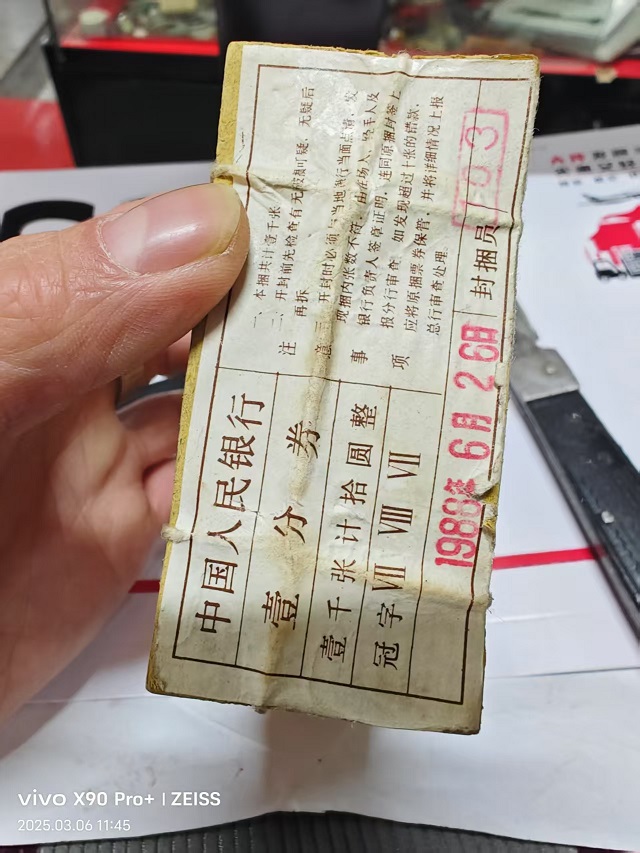 中国人民银行
壹分券
壹千张计拾圆整
冠字 VII VIII VII
1988年 6月 26日
注意事项
一、本捆共计壹千张
二、开封前先检查有无破损可疑，无疑后
再拆
三、开封时必须与当地银行当面点清，发
现捆内张数不符，在场人、经手人及
银行负责人签章证明，连同原捆封签上
报分行审查。如发现超过十张的错款，
应将原捆票券保管，并将详细情况上报
总行审查处理。
封捆员
vivo X90 Pro+ | ZEISS
2025.03.06 11:45